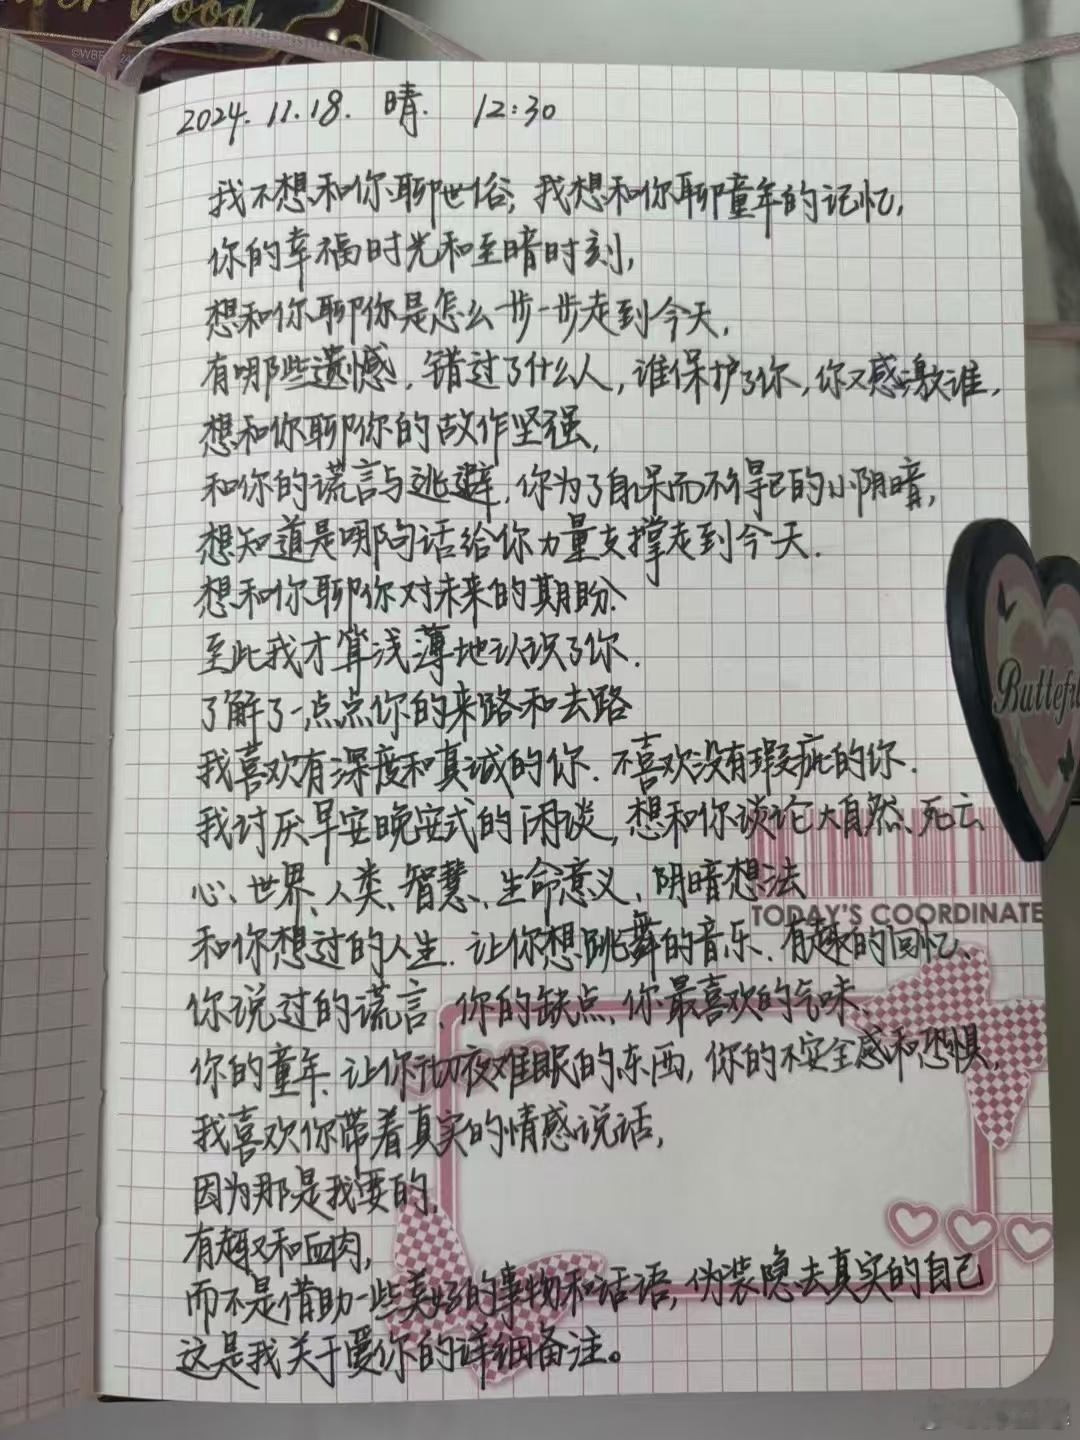 ©WBEI
2024.11.18. 晴. 12:30
我不想和你聊世俗, 我想和你聊童年的记忆,
你的幸福时光和至暗时刻,
想和你聊你是怎么一步一步走到今天.
有哪些遗憾, 错过了什么人, 谁保护了你, 你又感激谁,
想和你聊你的故作坚强,
和你的谎言与逃避, 你为了自保而不得已的小阴暗,
想知道是哪句话给你力量支撑走到今天.
想和你聊你对未来的期盼
至此我才算浅薄地认识了你.
了解了一点点你的来路和去路
我喜欢有深度和真诚的你. 不喜欢没有瑕疵的你.
我讨厌早安晚安式的闲谈, 想和你谈论大自然、死亡
心、世界、人类、智慧、生命意义、阴暗想法
TODAY'S COORDINATE
和你想过的人生. 让你想跳舞的音乐、有趣的回忆、
你说过的谎言、你的缺点、你最喜欢的气味、
你的童年、让你彻夜难眠的东西, 你的不安全感和恐惧,
我喜欢你带着真实的情感说话,
因为那是我要的,
有趣和血肉,
而不是借助一些美好的事物和话语, 伪装隐去真实的自己
这是我关于爱你的详细备注。